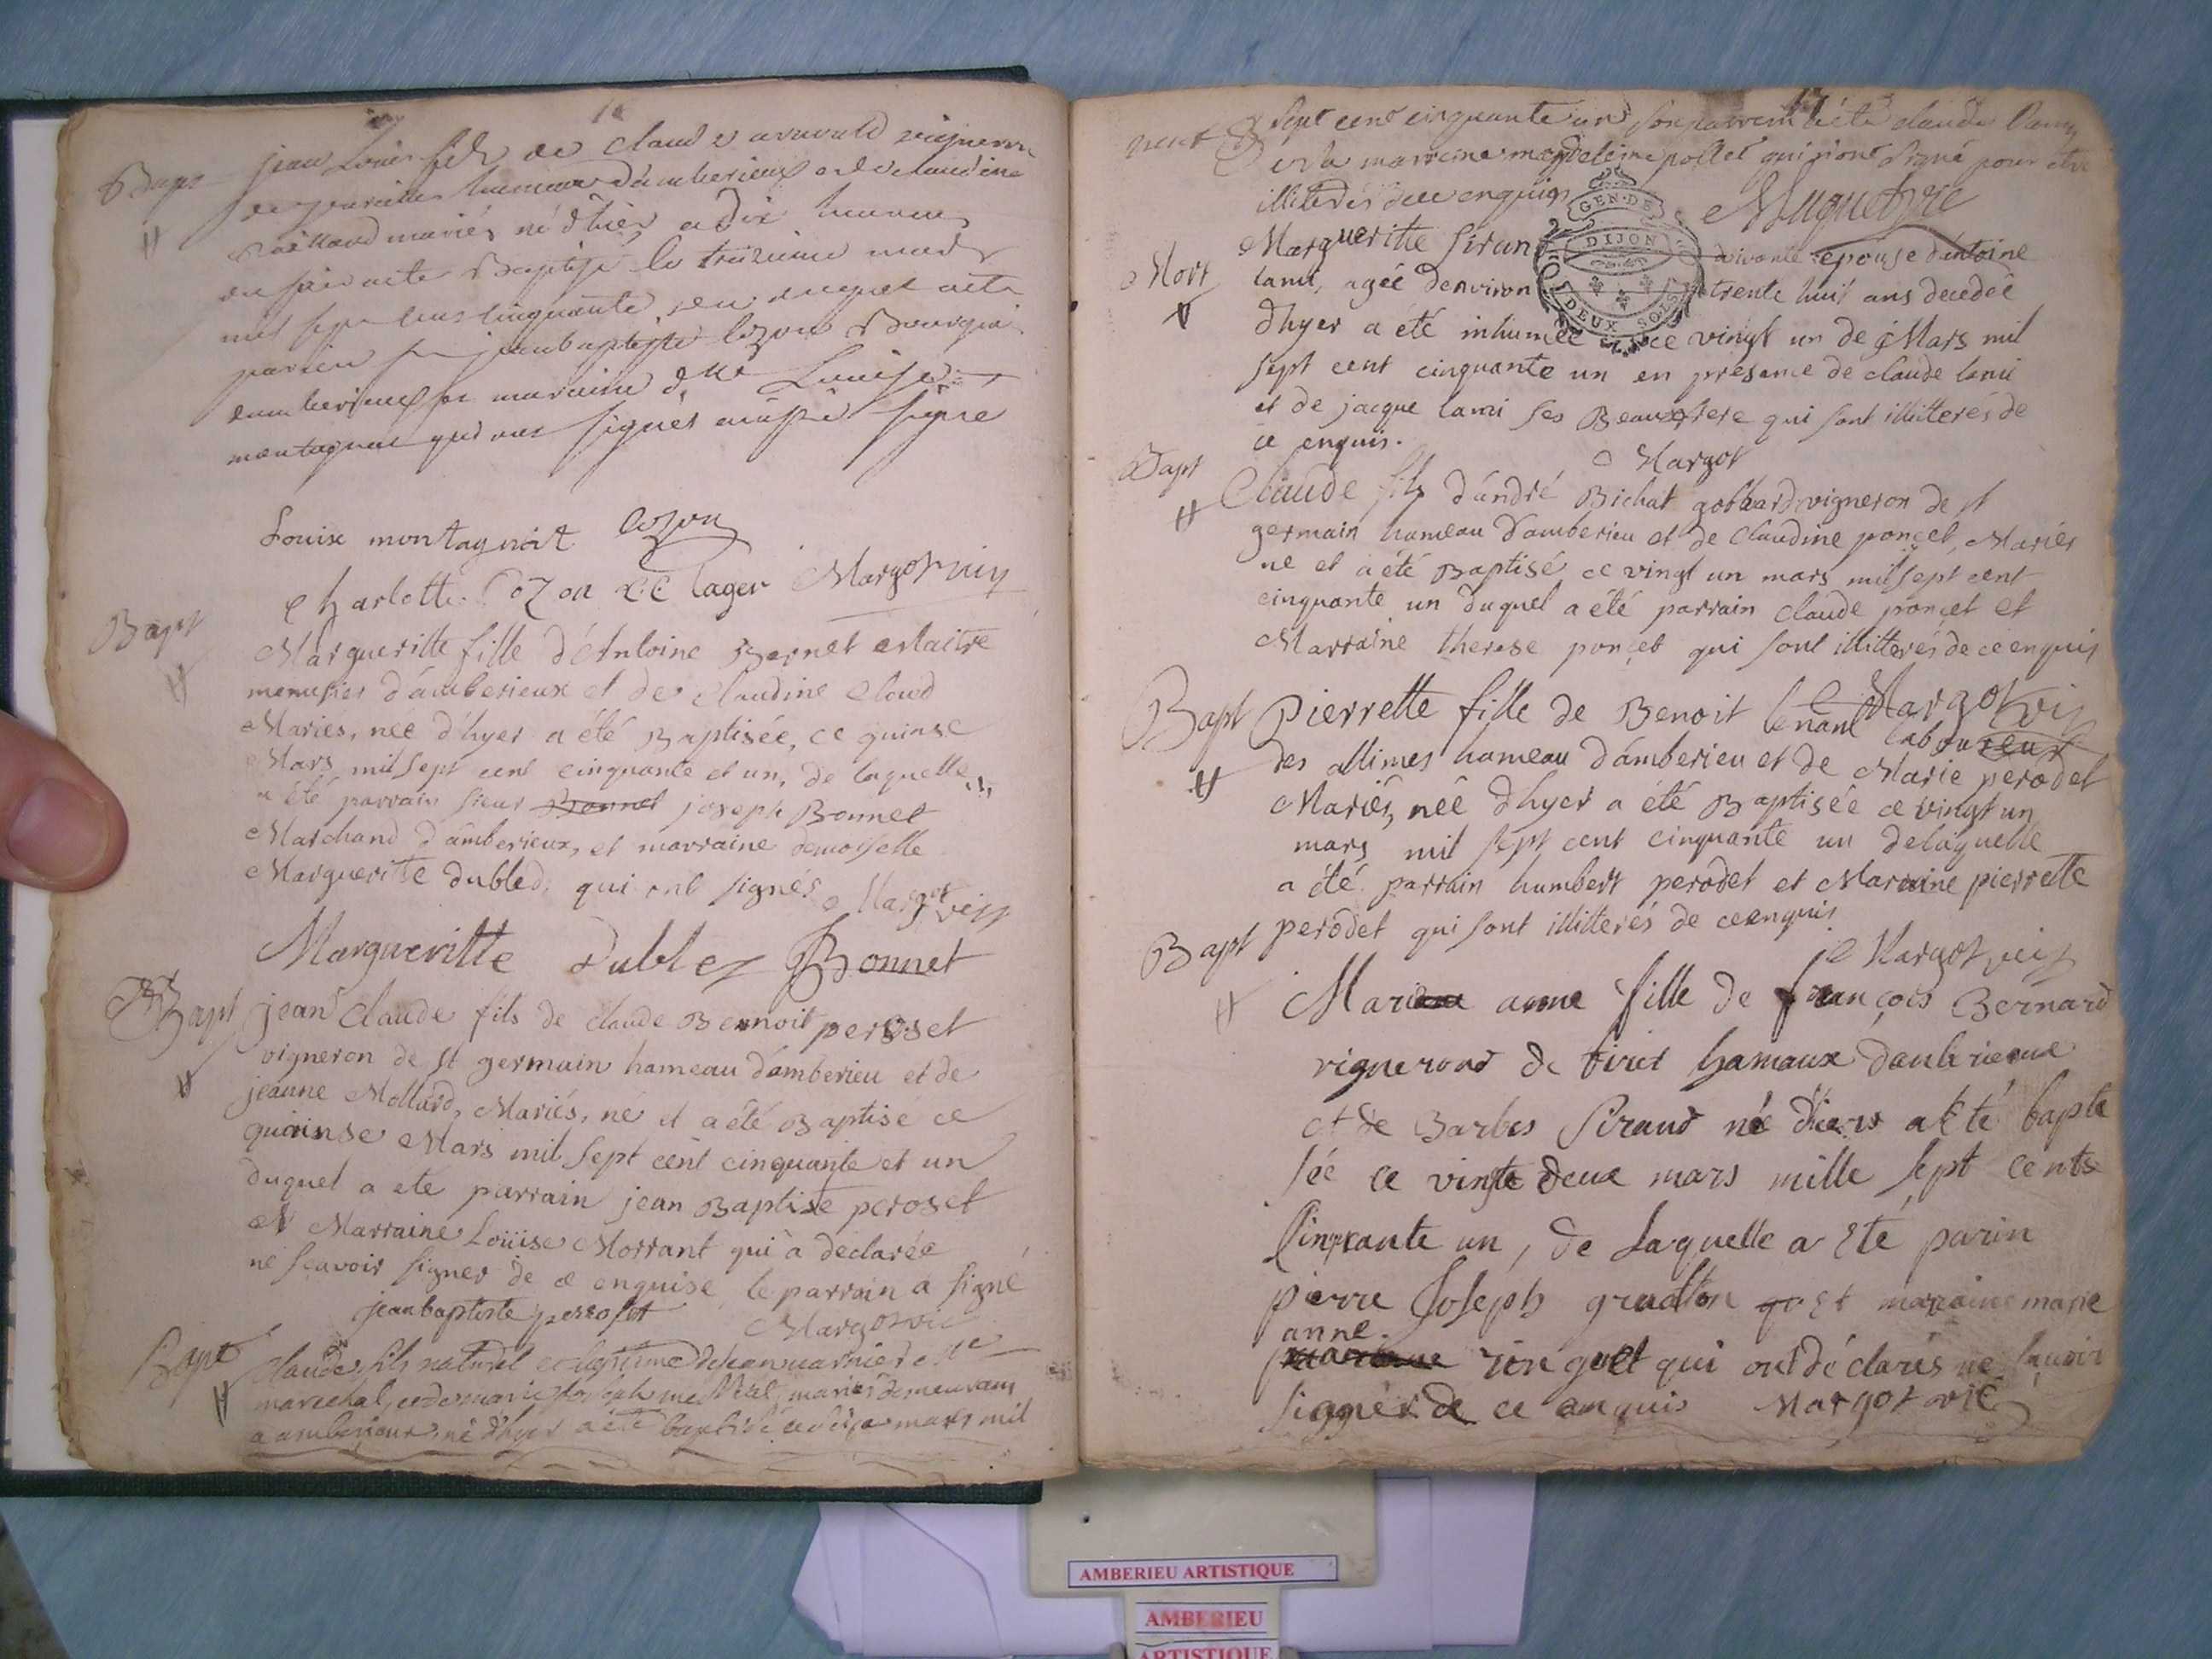 Bapt
jean Louis fils de Claude
hameau d'amberieux et de claudine
mariés né d'hier a dix heures
Baptisé le treizieme mars
mil sept cens cinquante
jean baptiste cozon Bourgeois
maraine dlle Louise
Louise montagniat Cozon
Charlotte Cozon Margot vic
Bapt
Margueritte fille d'Antoine Bornet Maitre
menusier d'amberieux et de Claudine Cloud
Mariés, neé d'hyer a été Baptisée, ce quinse
Mars mil sept cent cinquante et un, de laquelle
a été parrain sieur Bonnet joseph Bonnet
Marchand d'amberieux, et marraine demoiselle
Margueritte dubled, qui ont signés Margot vic
Margueritte Dublez Bonnet
Bapt jean Claude fils de Claude Bennoit peroset
vigneron de st germain hameau d'amberieu et de
jeanne Mollard, Mariés, né et a été Baptisé ce
quinse Mars mil sept cent cinquante et un
duquel a ete parrain jean Baptiste peroset
et Marraine Loüise Morrant qui a declarée
ne scavoir signer de ce enquise, le parrain a signé
jean baptiste perroset Margot vic
Bapt Claude, fils naturel et legitime de jean
marechal, et de marie mariés demeurans
a amberieux, né d'hyer a été baptisé mars mil
17
sept cent cinquante un son parrein a été claude
et la marreine magdeleine pollet qui n'ont signé pour être
illiterés de ce enquis
Huguet
GEN. DE
DIJON
DEUX SOLS
Mort
Margueritte Siran vivante épouse d'antoine
lami, agée d'environ trente huit ans decedeé
d'hyer a été inhumée ce vingt un de Mars mil
sept cent cinquante un en présence de claude lami
et de jacque lami ses Beauxfrere qui sont illitterés de
ce enquis.
Margot
Bapt
Claude fils d'andré Bichat gobbard vigneron de st
germain hameau d'amberieu et de Claudine ponçet, Mariés
né et a été Baptisé ce vingt un mars mil sept cent
cinquante un duquel a été parrain Claude ponçet et
Marraine therese ponçet qui sont illitterés de ce enquis
Margot vic
Bapt Pierrette fille de Benoit lenant laboureur
des allimes hameau d'amberieu et de Marie perodet
Mariés, neé d'hyer a été Baptisée ce vingt un
mars mil sept cent cinquante un delaquelle
a été parrain humbert perodet et Marraine pierrette
perodet qui sont illitterés de ce enquis
Margot vic
Bapt
Marie anne fille de françois Bernard
vigneront de tiret hamaux d'anberieux
et de Barbes Sirand née d'hiers a été bapti
sée ce vingte deux mars mille sept cents
cinqante un, de Laquelle a été parin
pierre Joseph gradton et maraine marie
anne
ringuet qui ont déclarés ne sçavoir
signer de ce enquis Margot vic
AMBERIEU ARTISTIQUE
AMBERIEU
ARTISTIQUE